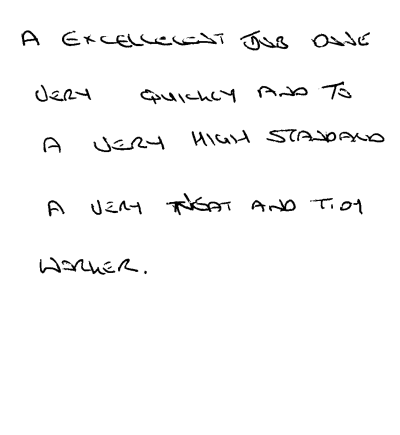 A EXCELLELENT JOB DONE
VERY QUICKLY AND TO
A VERY HIGH STANDARD
A VERY NEAT AND TIDY
WORKER.